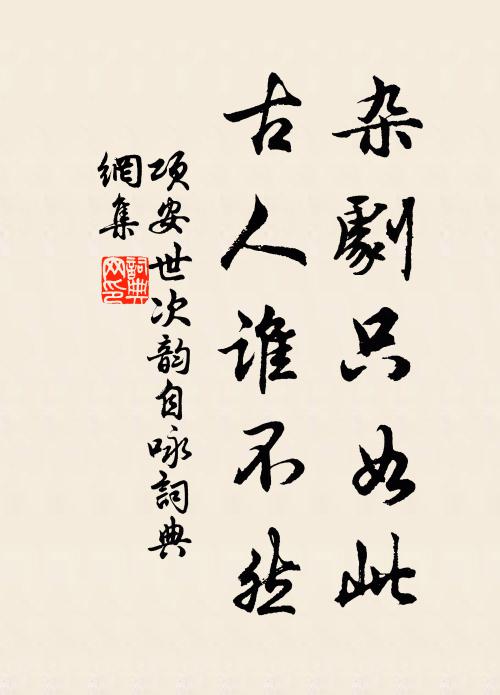 杂劇只如此
古人谁不然
项安世次韵自咏詞典
網集
詞典
网印